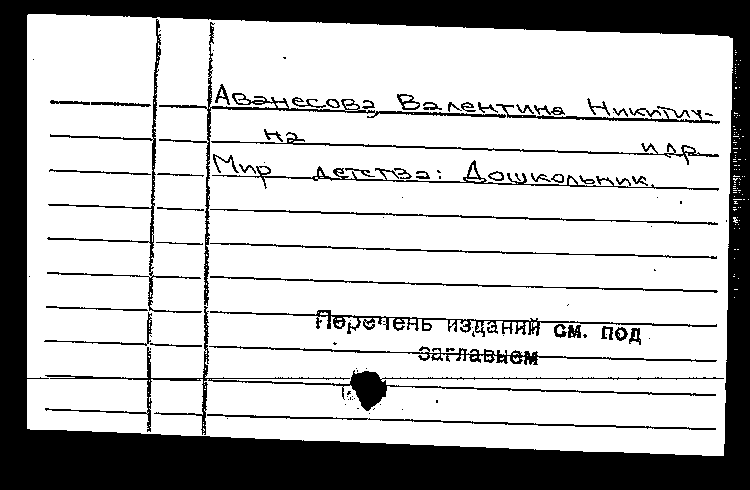 Аванесова Валентина Никитич-
на и др
Мир детства: Дошкольник.
Перечень изданий см. под
заглавием